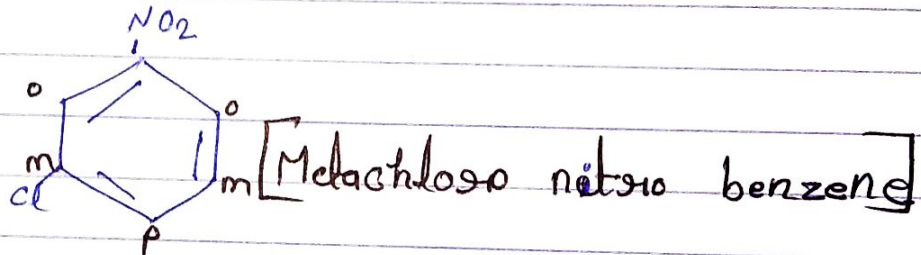 NO2
o
o
m
Cl
m [Metachloro nitro benzene]
p